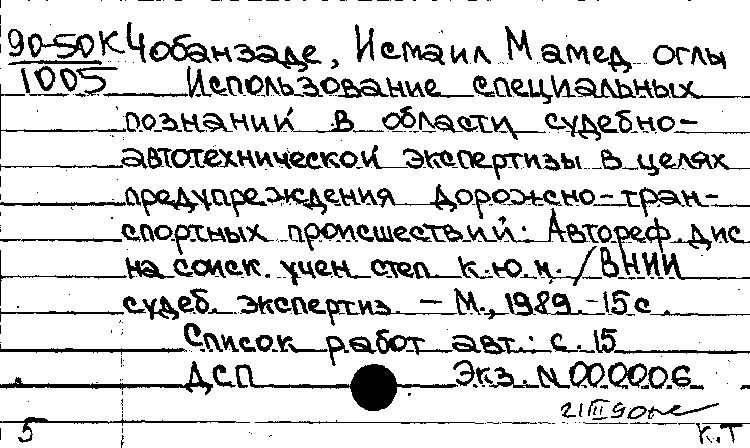 90-50К Чобанзаде, Исмаил Мамед оглы
1005 Использование специальных
познаний в области судебно-
автотехнической экспертизы в целях
предупреждения дорожно-тран-
спортных происшествий: Автореф. дис
на соиск. учен. степ. к.ю.н. / ВНИИ
судеб. экспертиз. — М., 1989. - 15 с.
Список работ авт.: с. 15
ДСП Экз. N 000006
21 III 90
5 К.Т